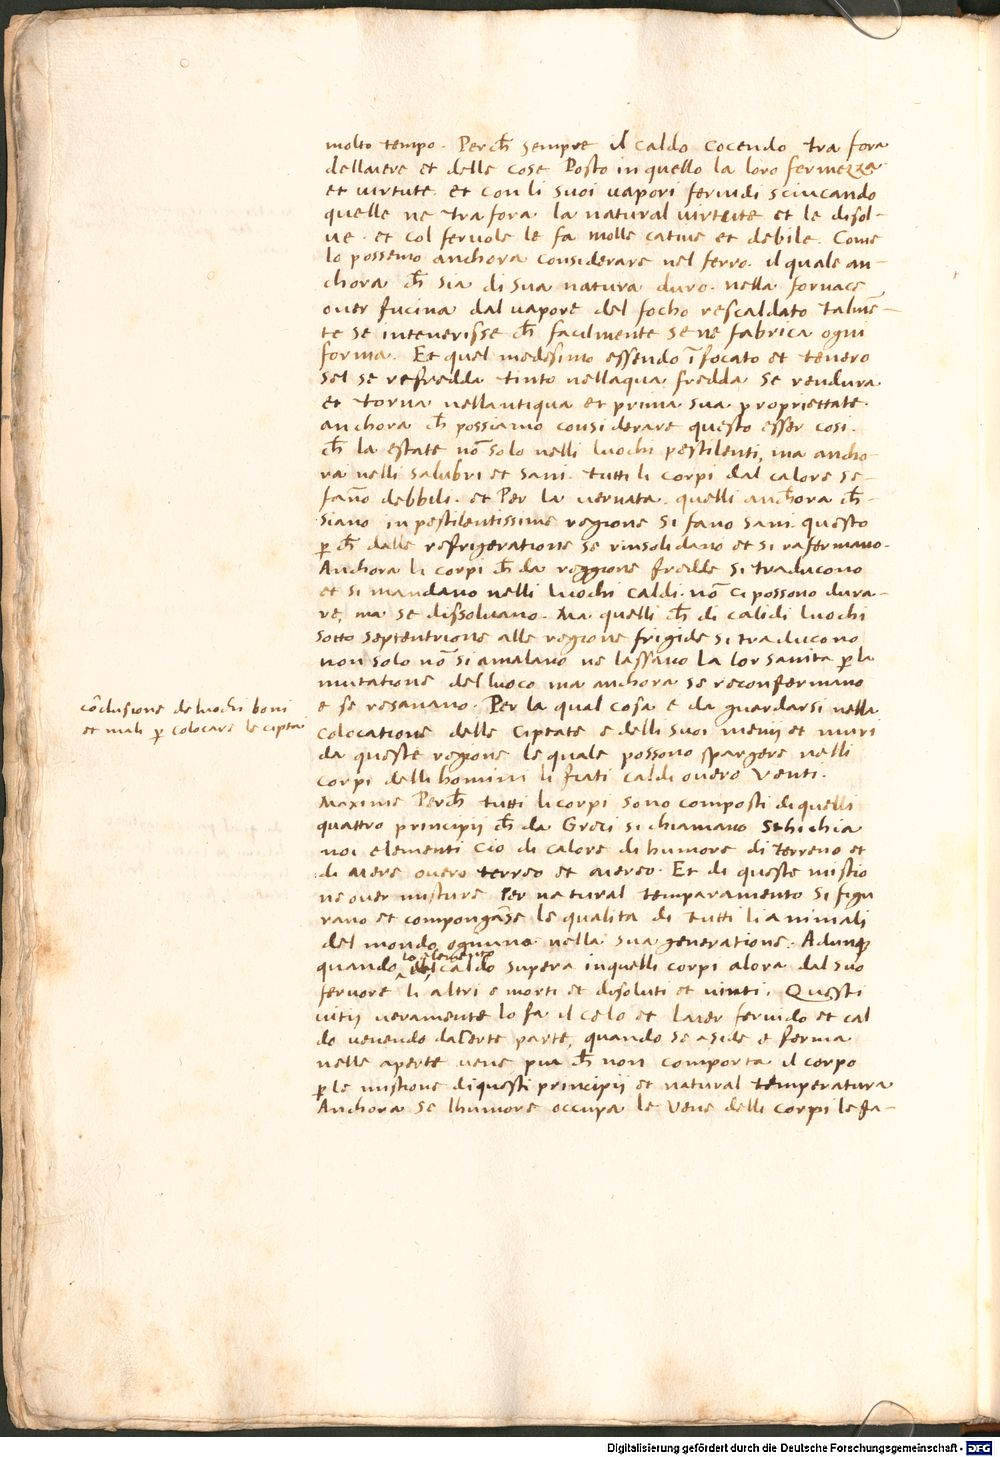 molto tempo. Perch̄ sempre il caldo cocendo tra fora
dellaiere et delle cose Posto in quello la loro fermezza
et virtute. et con li suoi vapori feruidi sciucando
quelle ne tra fora la natural virtute et le disol-
ue. et col feruole le fa molle catiue et debile. Come
lo possemo anchora considerare nel ferro. il quale an-
chora ch̄ sia di sua natura duro. nella fornace
ouer fucina dal vapore del focho rescaldato talmē-
te se intenerisse ch̄ facilmente se ne fabrica ogni
forma. Et quel medesimo essendo īfocato et tenero
sel se refredda tinto nellaqua fredda se rendura
et torna nellantiqua et prima sua propriettate.
anchora ch̄ possiamo considerare questo esser cosi.
ch̄ la estate nō solo nelli luochi pestilenti, ma ancho-
ra nelli salubri et sani. tutti li corpi dal calore se
fan̄o debbili. et Per la uernata. quelli anchora ch̄-
siano in pestilentissime regione si fano sani. questo
p̱ ch̄ dalle refrigeratione se rinsolidano et si rafermano.
Anchora li corpi ch̄ da reggione fredde si traducono
et si mandano nelli luochi caldi. nō ci possono dura-
re, ma se dissoluano. Ma quelli ch̄ di calidi luochi
sotto septentrione alle regione frigide si traducono
non solo nō si amalano ne lassano la lor sanita p̱ la
mutatione del luoco ma anchora se reconfermano
e se resanano. Per la qual cosa e da guardarsi nella
cōclusione de luochi boni
et mali p̱ colocare le ciptai
colocatione delle Ciptate e delli suoi menii et muri
da queste regione le quale possono spargere nelli
corpi delli homini li fiati caldi ouero Venti.
Maxime Perch̄ tutti li corpi sono composti di quelli
quattro principii ch̄ da Greci si chiamano Sthichia
noi elementi cio di calore di humore di terreno et
di aiere ouero terreo et aiereo. Et di queste mistio
ne ouer misture Per natural temparamento si figu
rano et compongāse le qualita di tutti li animali
del mondo ognuno nella sua generatione. Adunq̄
lo elemento
quando del caldo supera in quelli corpi alora dal suo
feruore li altri e morti et disoluti et vinti. Questi
vitii ueramente lo fa il celo et laier feruido et cal
do uenendo da Certe parte, quando se aside e ferma
nelle aperte uene piu ch̄ non comporta il corpo
p̱ le mistione di questi principii et natural temperatura
Anchora se lhumore occupa le Vene delli corpi le fa-
Digitalisierung gefördert durch die Deutsche Forschungsgemeinschaft - DFG